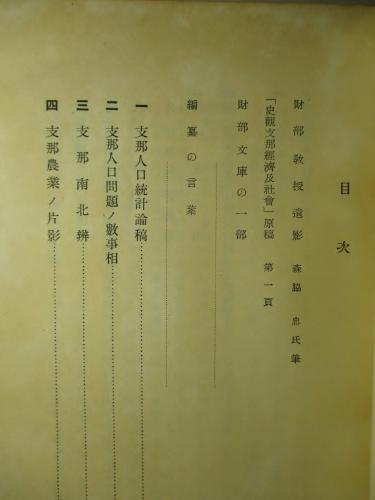 目次
財部教授遺影 森脇忠氏筆
「史觀支那經濟及社會」原稿 第一頁
財部文庫の一部
編纂の言葉
一 支那人口統計論稿
二 支那人口問題ノ數事相
三 支那南北辨
四 支那農業ノ片影